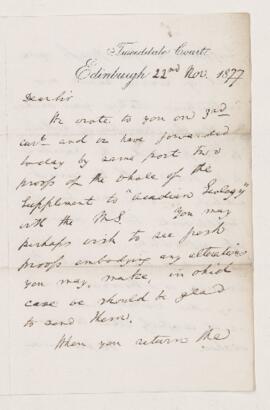 Tweeddale Court.
Edinburgh 22nd Nov. 1877
Dear Sir
We wrote to you on 3rd
curt. and have forwarded
today by same post two
proofs of the whole of the
Supplement to "Acadian Geology"
with the MS. You may
perhaps wish to see fresh
proofs embodying any alterations
you may make, in which
case we should be glad
to send them.
When you return the